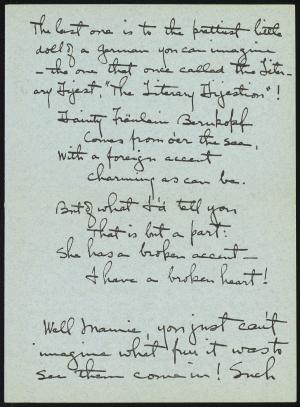 The last one is to the prettiest little
doll of a German you can imagine
— the one that once called the Liter-
ary Digest, "The Literary Dijestion"!
Dainty Fräulein Bernkopf
Comes from o'er the sea,
With a foreign accent
Charming as can be.
But of what I'd tell you
That is but a part:
She has a broken accent —
I have a broken heart!
Well Mamie, you just can't
imagine what fun it was to
see them come in! Such